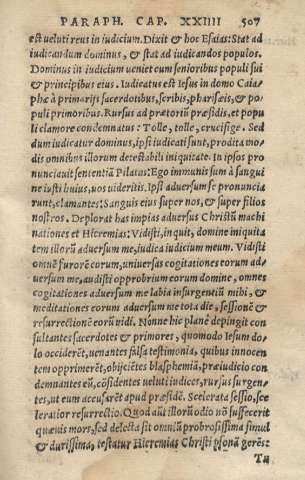 PARAPH. CAP. XXIIII 507
est veluti reus in iudicium. Dixit & hoc Esaias: Stat ad
iudicandum dominus, & stat ad iudicandos populos.
Dominus in iudicium ueniet cum senioribus populi sui
& principibus eius. Iudicatus est Iesus in domo Caia-
phæ à primarijs sacerdotibus, scribis, pharisæis, & po-
puli primoribus. Rursus ad prætoriũ præsidis, et popu
li clamore condemnatus: Tolle, tolle, crucifige. Sed
dum iudicatur dominus, ipsi iudicati sunt, prodita mo-
dis omnibus illorum detestabili iniquitate. In ipsos pro
nunciauit sententiã Pilatus: Ego immunis sum à sangui
ne iusti huius, uos uideritis. Ipsi aduersum se pronuncia
runt, clamantes: Sanguis eius super nos, & super filios
nostros. Deplorat has impias aduersus Christũ machi
nationes et Hieremias: Vidisti, inquit, domine iniquita
tem illorũ aduersum me, iudica iudicium meum. Vidisti
omnẽ furorẽ eorum, uniuersas cogitationes eorum ad-
uersum me, audisti opprobrium eorum domine, omnes
cogitationes aduersum me labia insurgentiũ mihi, &
meditationes eorum aduersum me tota die, sessionẽ &
resurrectionẽ eorũ uidi. Nonne hic planè depingit con
sultantes sacerdotes & primores, quomodo Iesum do-
lo occiderẽt, uenantes falsa testimonia, quibus innocen
tem opprimerẽt, obijciẽtes blasphemiã, præiudicio con
demnantes eũ, cõsidentes ueluti iudices, rursus surgen-
tes, ut eum accusarẽt apud præsidẽ. Scelerata sessio, sce
leratior resurrectio. Quod aũt illorũ odio nõ suffecerit
quæuis mors, sed delecta sit omniũ probrosissima simul
& durissima, testatur Hieremias Christi psonã gerẽs:
Tu